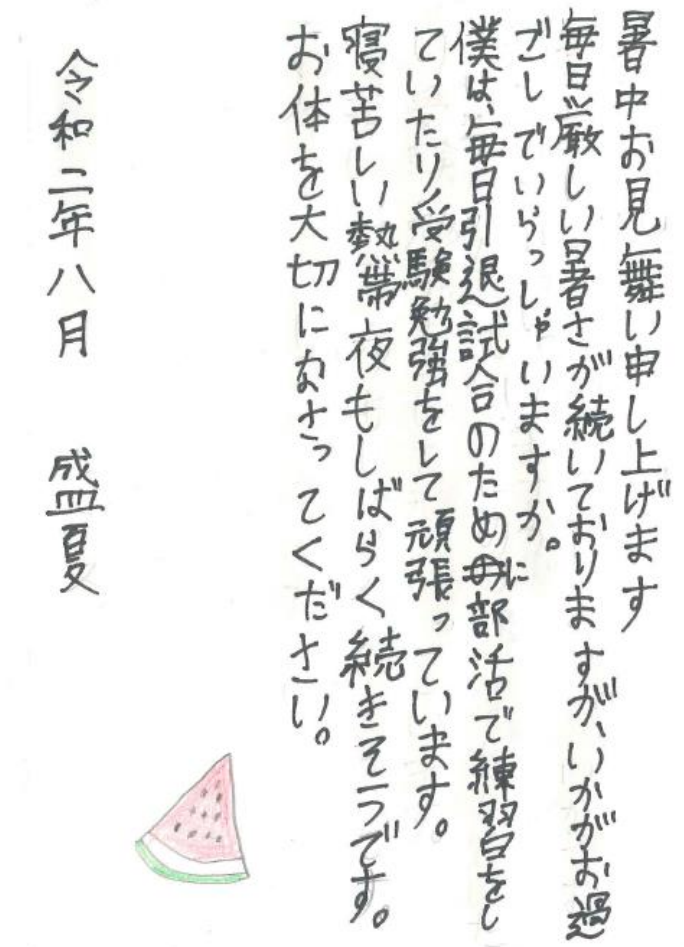 暑中お見舞い申し上げます
毎日厳しい暑さが続いておりますが、いかがお過
ごしでいらっしゃいますか。
僕は、毎日引退試合のために部活で練習をし
ていたり受験勉強をして頑張っています。
寝苦しい熱帯夜もしばらく続きそうです。
お体を大切になさってください。
令和二年八月 盛夏